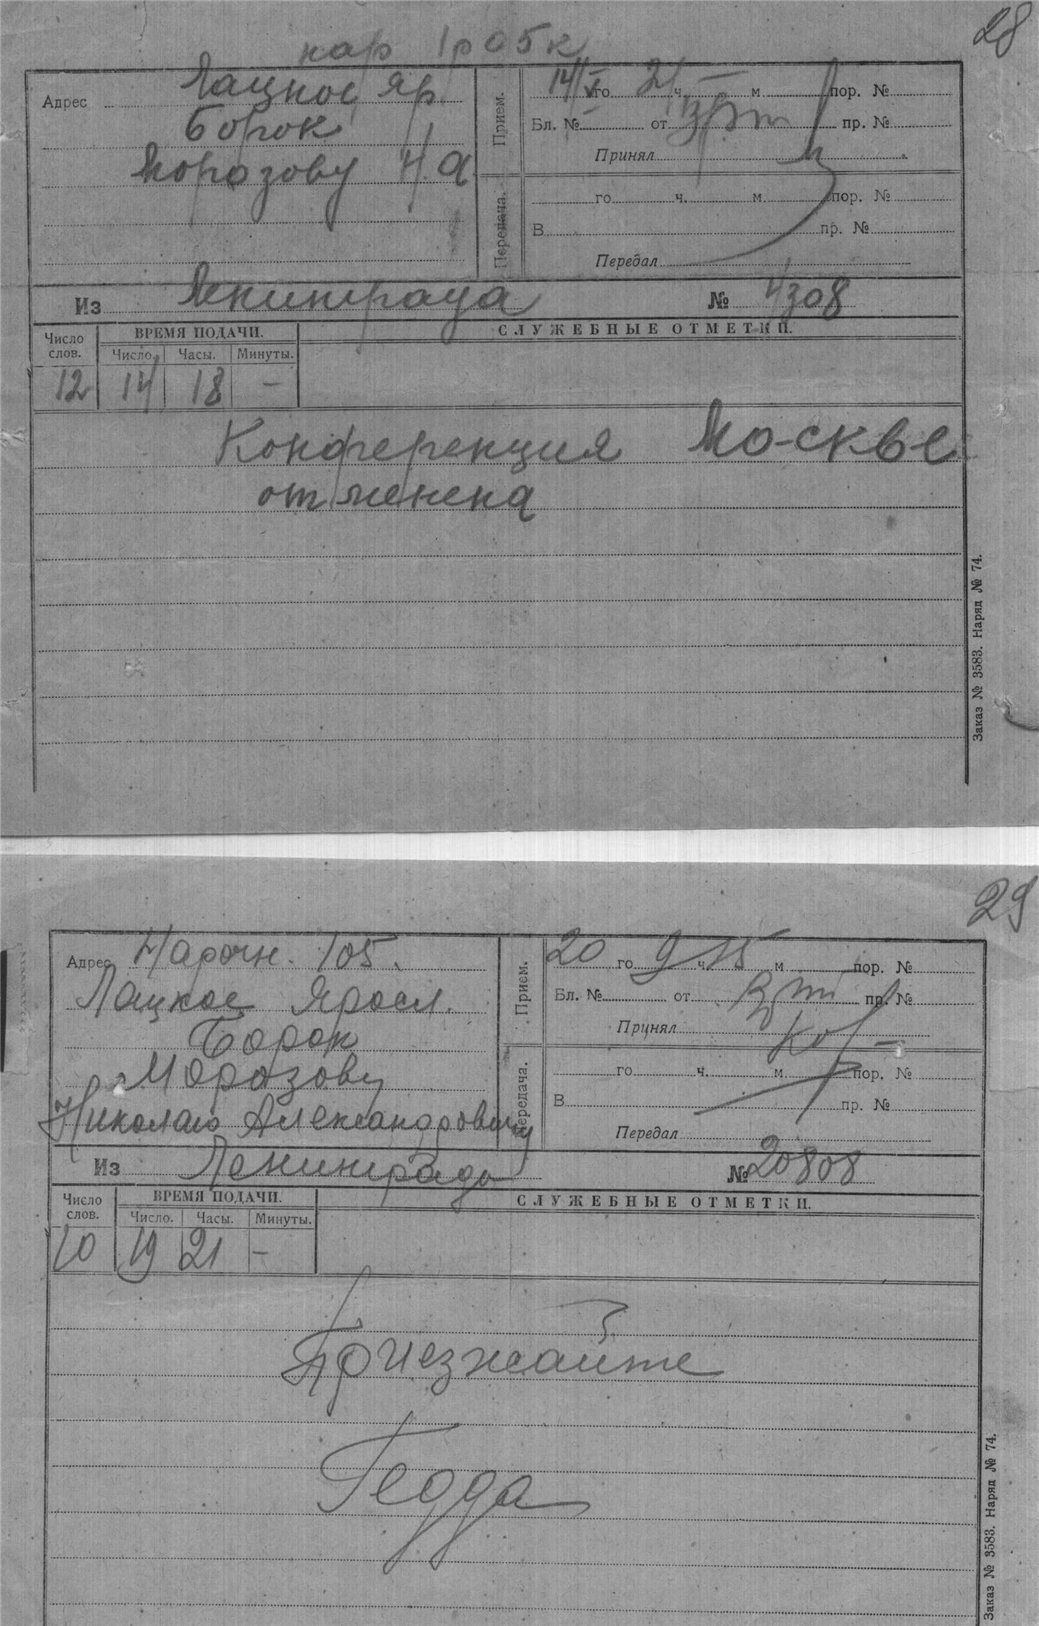 28
нар 1р05к
Адрес Лацкое Яр
Борок
Морозову Н.А
Прием.
14/V го 21 ч. — м. пор. №
Бл. № от пр. №
Принял
Передача.
го ч. м. пор. №
В пр. №
Передал
Из Ленинграда № 4308
Число слов. ВРЕМЯ ПОДАЧИ. СЛУЖЕБНЫЕ ОТМЕТКИ.
Число. Часы. Минуты.
12 14 18 —
Конференция Мо-скве
отменена
Заказ № 3583. Наряд № 74.
29
Адрес Нарочн. 105.
Лацкое Яросл.
Борок
Морозову
Николаю Александровичу
Прием.
20 го 9 ч 15 м пор. №
Бл. № от пр. №
Принял
Передача.
го ч. м. пор. №
В пр. №
Передал
Из Ленинграда № 20808
Число слов. ВРЕМЯ ПОДАЧИ. СЛУЖЕБНЫЕ ОТМЕТКИ.
Число. Часы. Минуты.
10 19 21 —
Приезжайте
Гедда
Заказ № 3583. Наряд № 74.